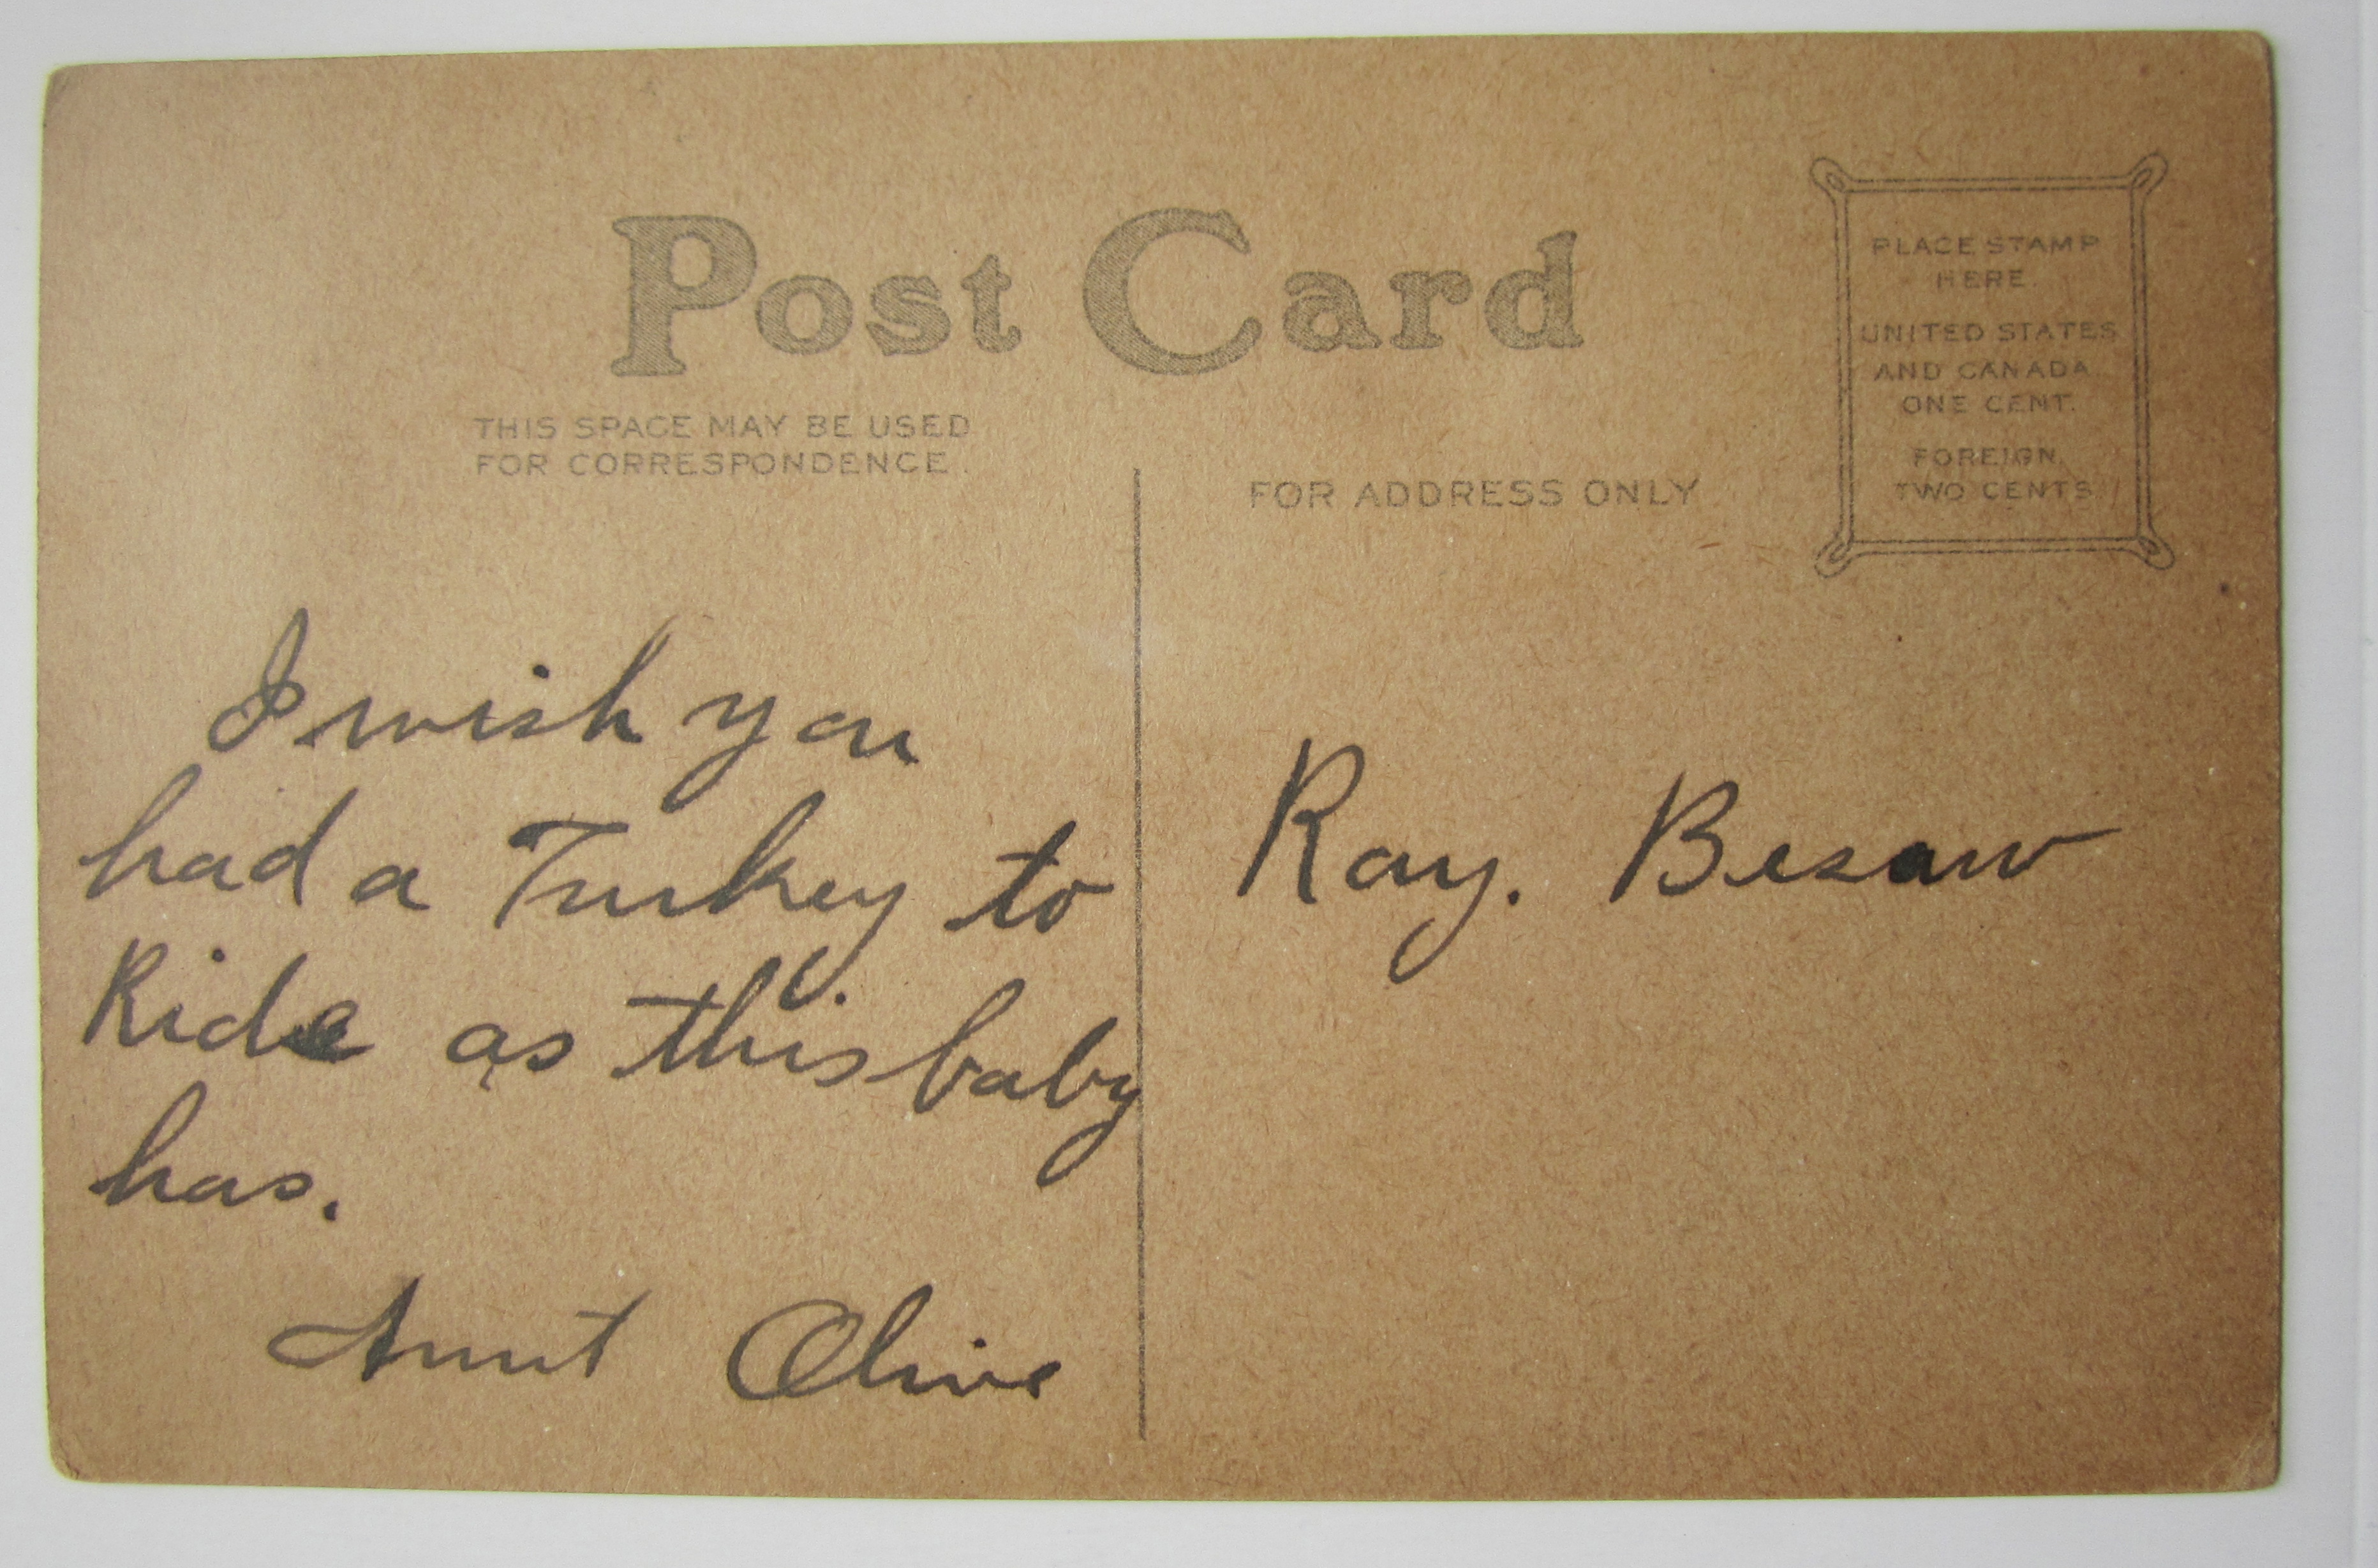 Post Card
THIS SPACE MAY BE USED
FOR CORRESPONDENCE.
FOR ADDRESS ONLY
PLACE STAMP
HERE.
UNITED STATES
AND CANADA
ONE CENT.
FOREIGN,
TWO CENTS
I wish you
had a Turkey to
Ride as this baby
has.
Aunt Olive
Ray. Besaw